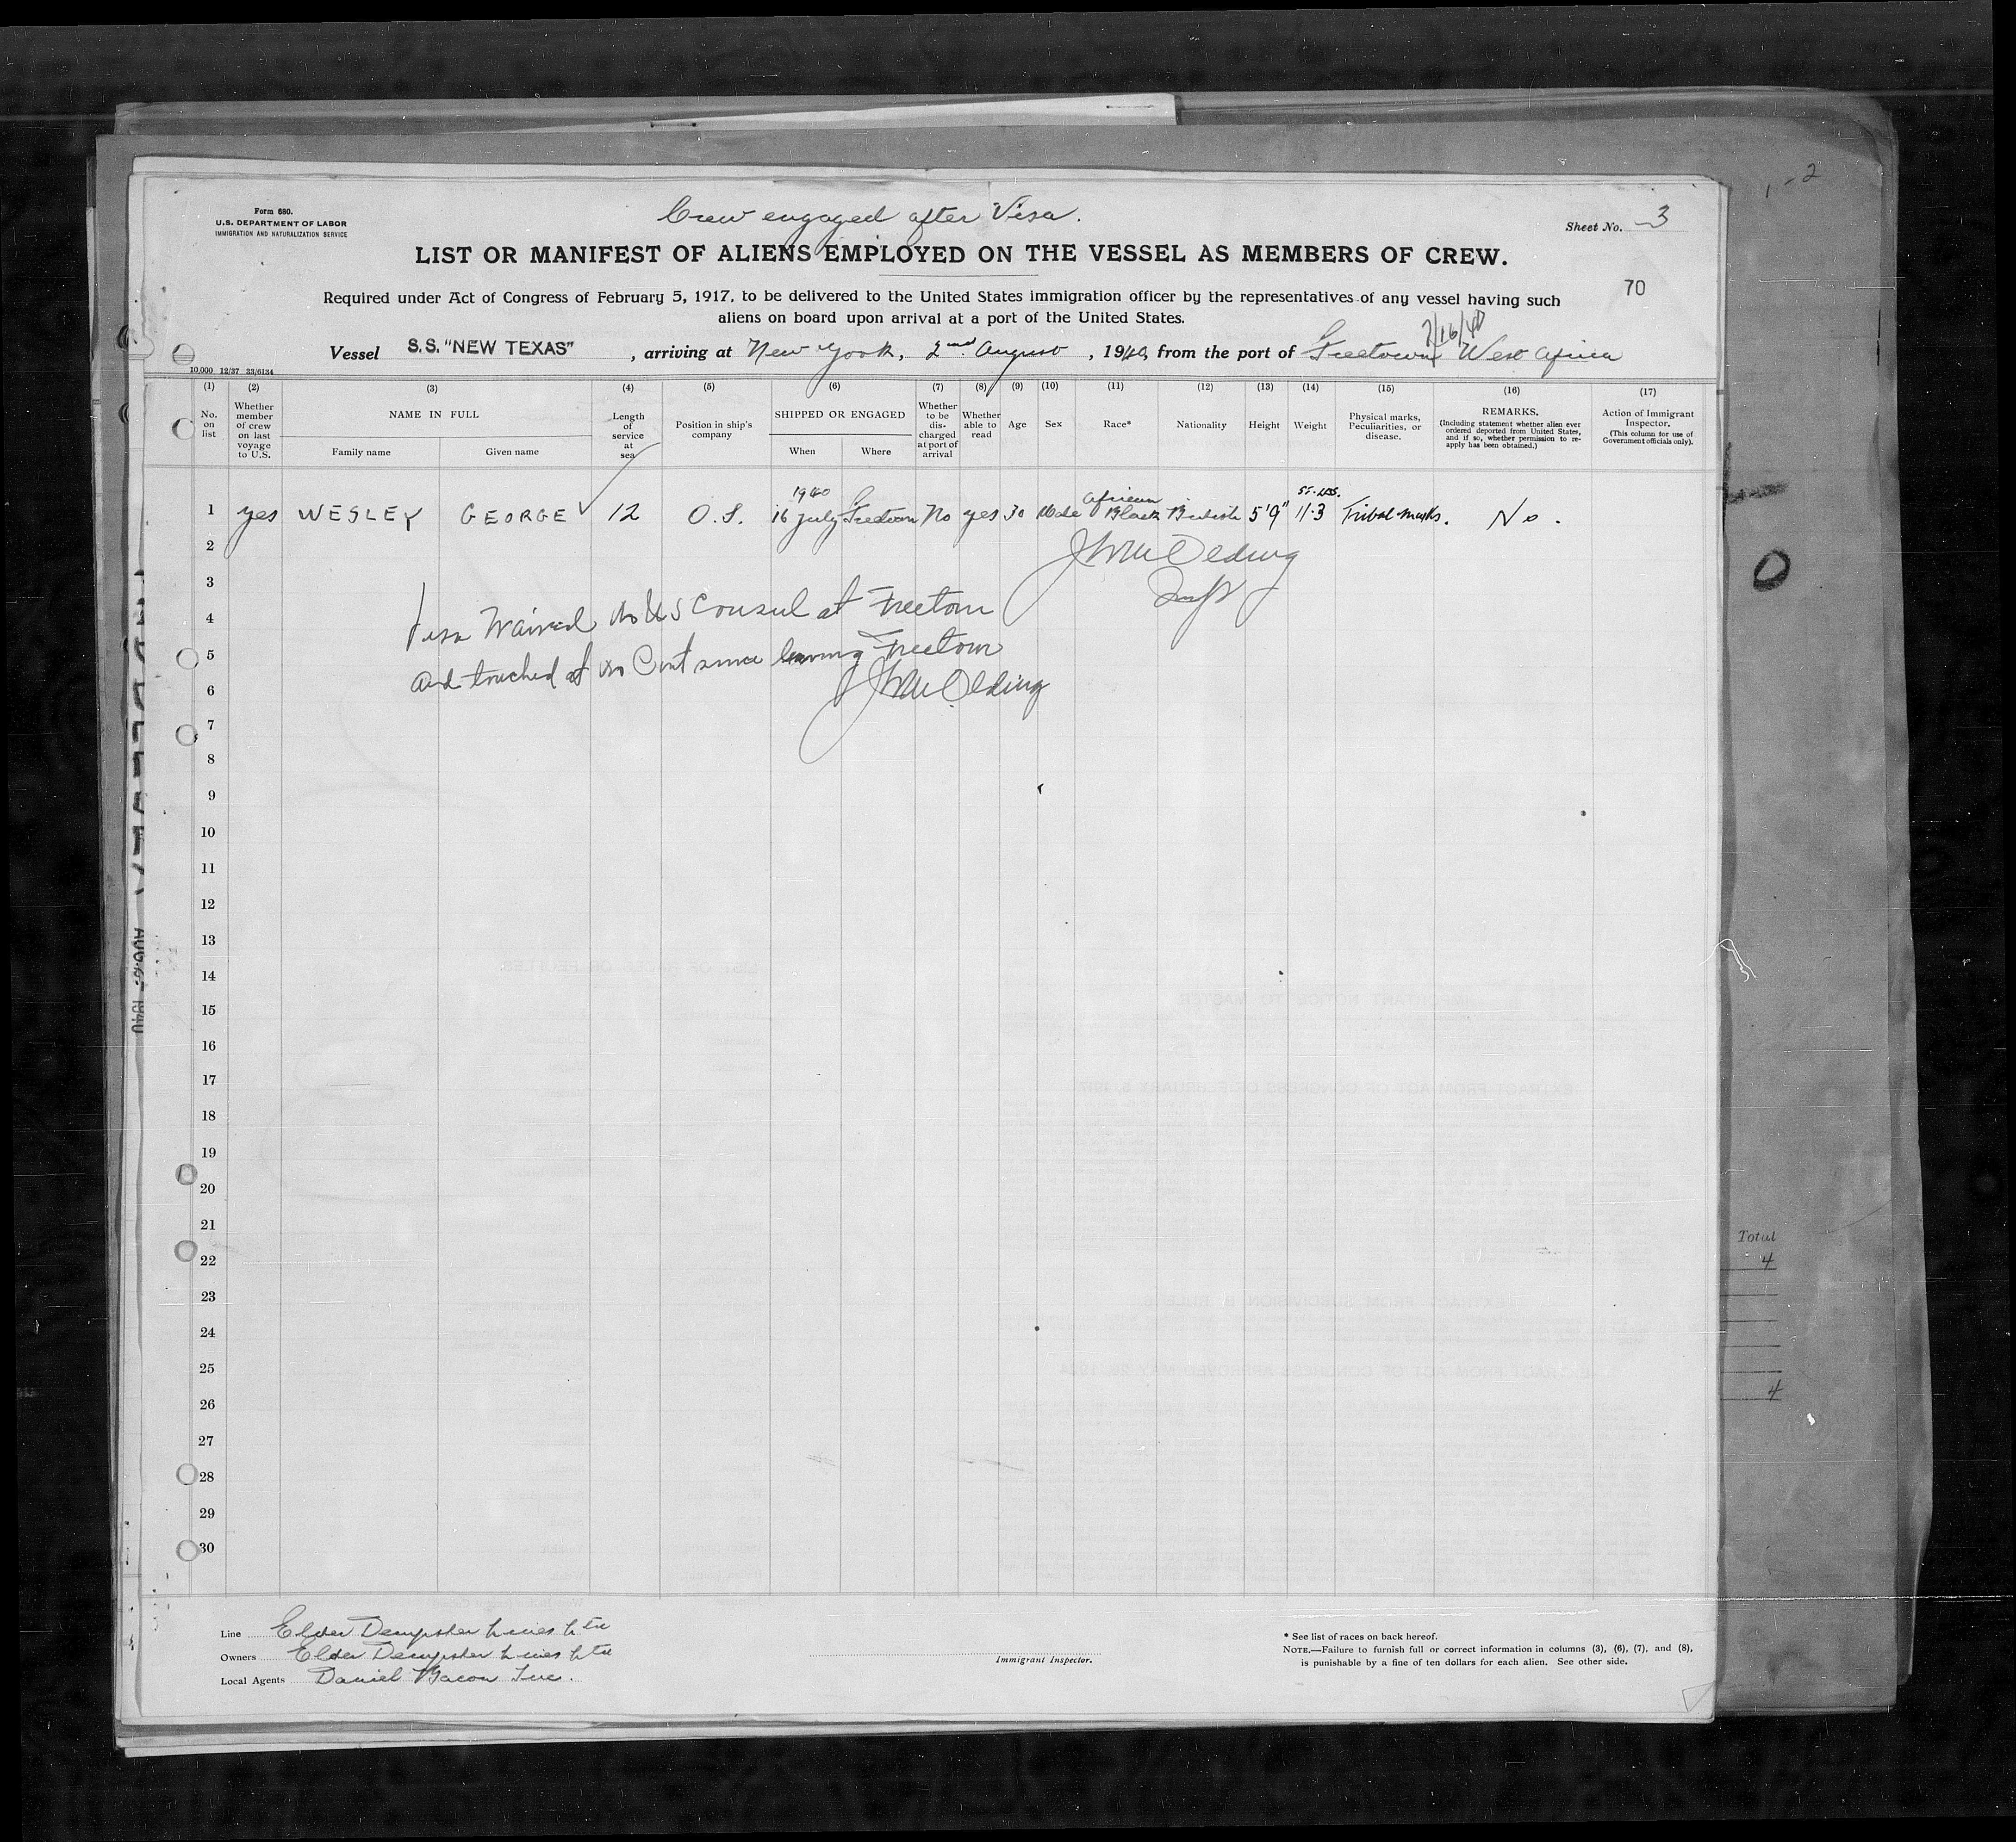 1-2
Form 680.
U.S. DEPARTMENT OF LABOR
IMMIGRATION AND NATURALIZATION SERVICE
Crew engaged after Visa.
Sheet No. 3
LIST OR MANIFEST OF ALIENS EMPLOYED ON THE VESSEL AS MEMBERS OF CREW.
70
Required under Act of Congress of February 5, 1917, to be delivered to the United States immigration officer by the representatives of any vessel having such
aliens on board upon arrival at a port of the United States.
7/16/40
Vessel S.S. "NEW TEXAS", arriving at New York, 2nd August, 1940, from the port of Freetown West Africa
10,000 12/37 33/6134
(1) (2) (3) (4) (5) (6) (7) (8) (9) (10) (11) (12) (13) (14) (15) (16) (17)
No. on list
Whether member of crew on last voyage to U.S.
NAME IN FULL
Family name
Given name
Length of service at sea
Position in ship's company
SHIPPED OR ENGAGED
When
Where
Whether to be discharged at port of arrival
Whether able to read
Age
Sex
Race*
Nationality
Height
Weight
Physical marks, Peculiarities, or disease.
REMARKS.
(Including statement whether alien ever ordered deported from United States, and if so, whether permission to reapply has been obtained.)
Action of Immigrant Inspector.
(This column for use of Government officials only).
1940 African ST. LBS.
1 yes WESLEY GEORGE 12 O.S. 16 July Freetown No yes 30 Male Black British 5'9" 11.3 Tribal marks. No.
2
3
4 Visa Waived No US Consul at Freetown
5 and touched at no Cont since leaving Freetown
6
7
8
9
10
11
12
13
14
15
16
17
18
19
20
21
22
23
24
25
26
27
28
29
30
0
Total
4
4
AUG 1940
Line Elder Dempster Lines Ltd
Owners Elder Dempster Lines Ltd
Local Agents Daniel Bacon Inc.
Immigrant Inspector.
* See list of races on back hereof.
NOTE.—Failure to furnish full or correct information in columns (3), (6), (7), and (8),
is punishable by a fine of ten dollars for each alien. See other side.